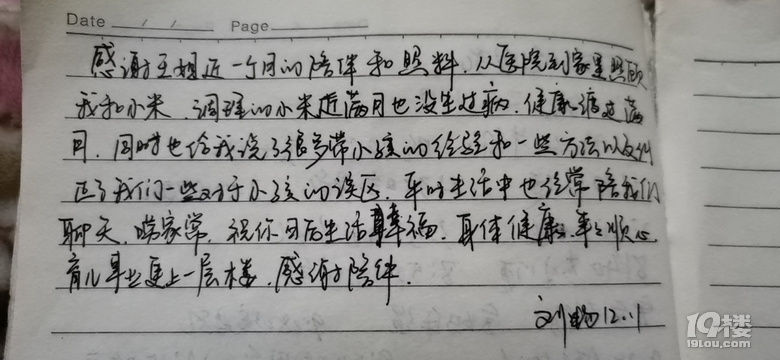 Date / / Page
感谢王姐近一个月的陪伴和照料，从医院到家里照顾
我和小米，调理的小米近满月也没生过病，健康度过满
月，同时也给我说了很多带小孩的经验和一些方法以及纠
正了我们一些对于小孩的误区，平时生活中也经常陪我们
聊天，唠家常，祝你日后生活幸福，身体健康，事事顺心
育儿事业更上一层楼，感谢陪伴.
刘 12.11
19楼
19lou.com